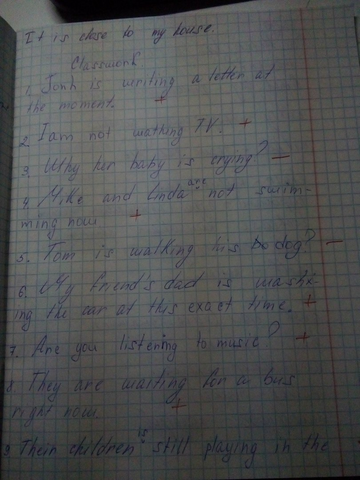 It is close to my house.
Classwork
1. Jonh is writing a letter at
the moment. +
2. I am not wathing TV. +
3. Why her baby is crying? –
4. Mike and Linda are not swim-
ming now. +
5. Tom is walking his dog? –
6. My friend's dad is washi-
ing the car at this exact time. +
7. Are you listening to music? +
8. They are waiting for a bus
right now. +
9. Their children is still playing in the